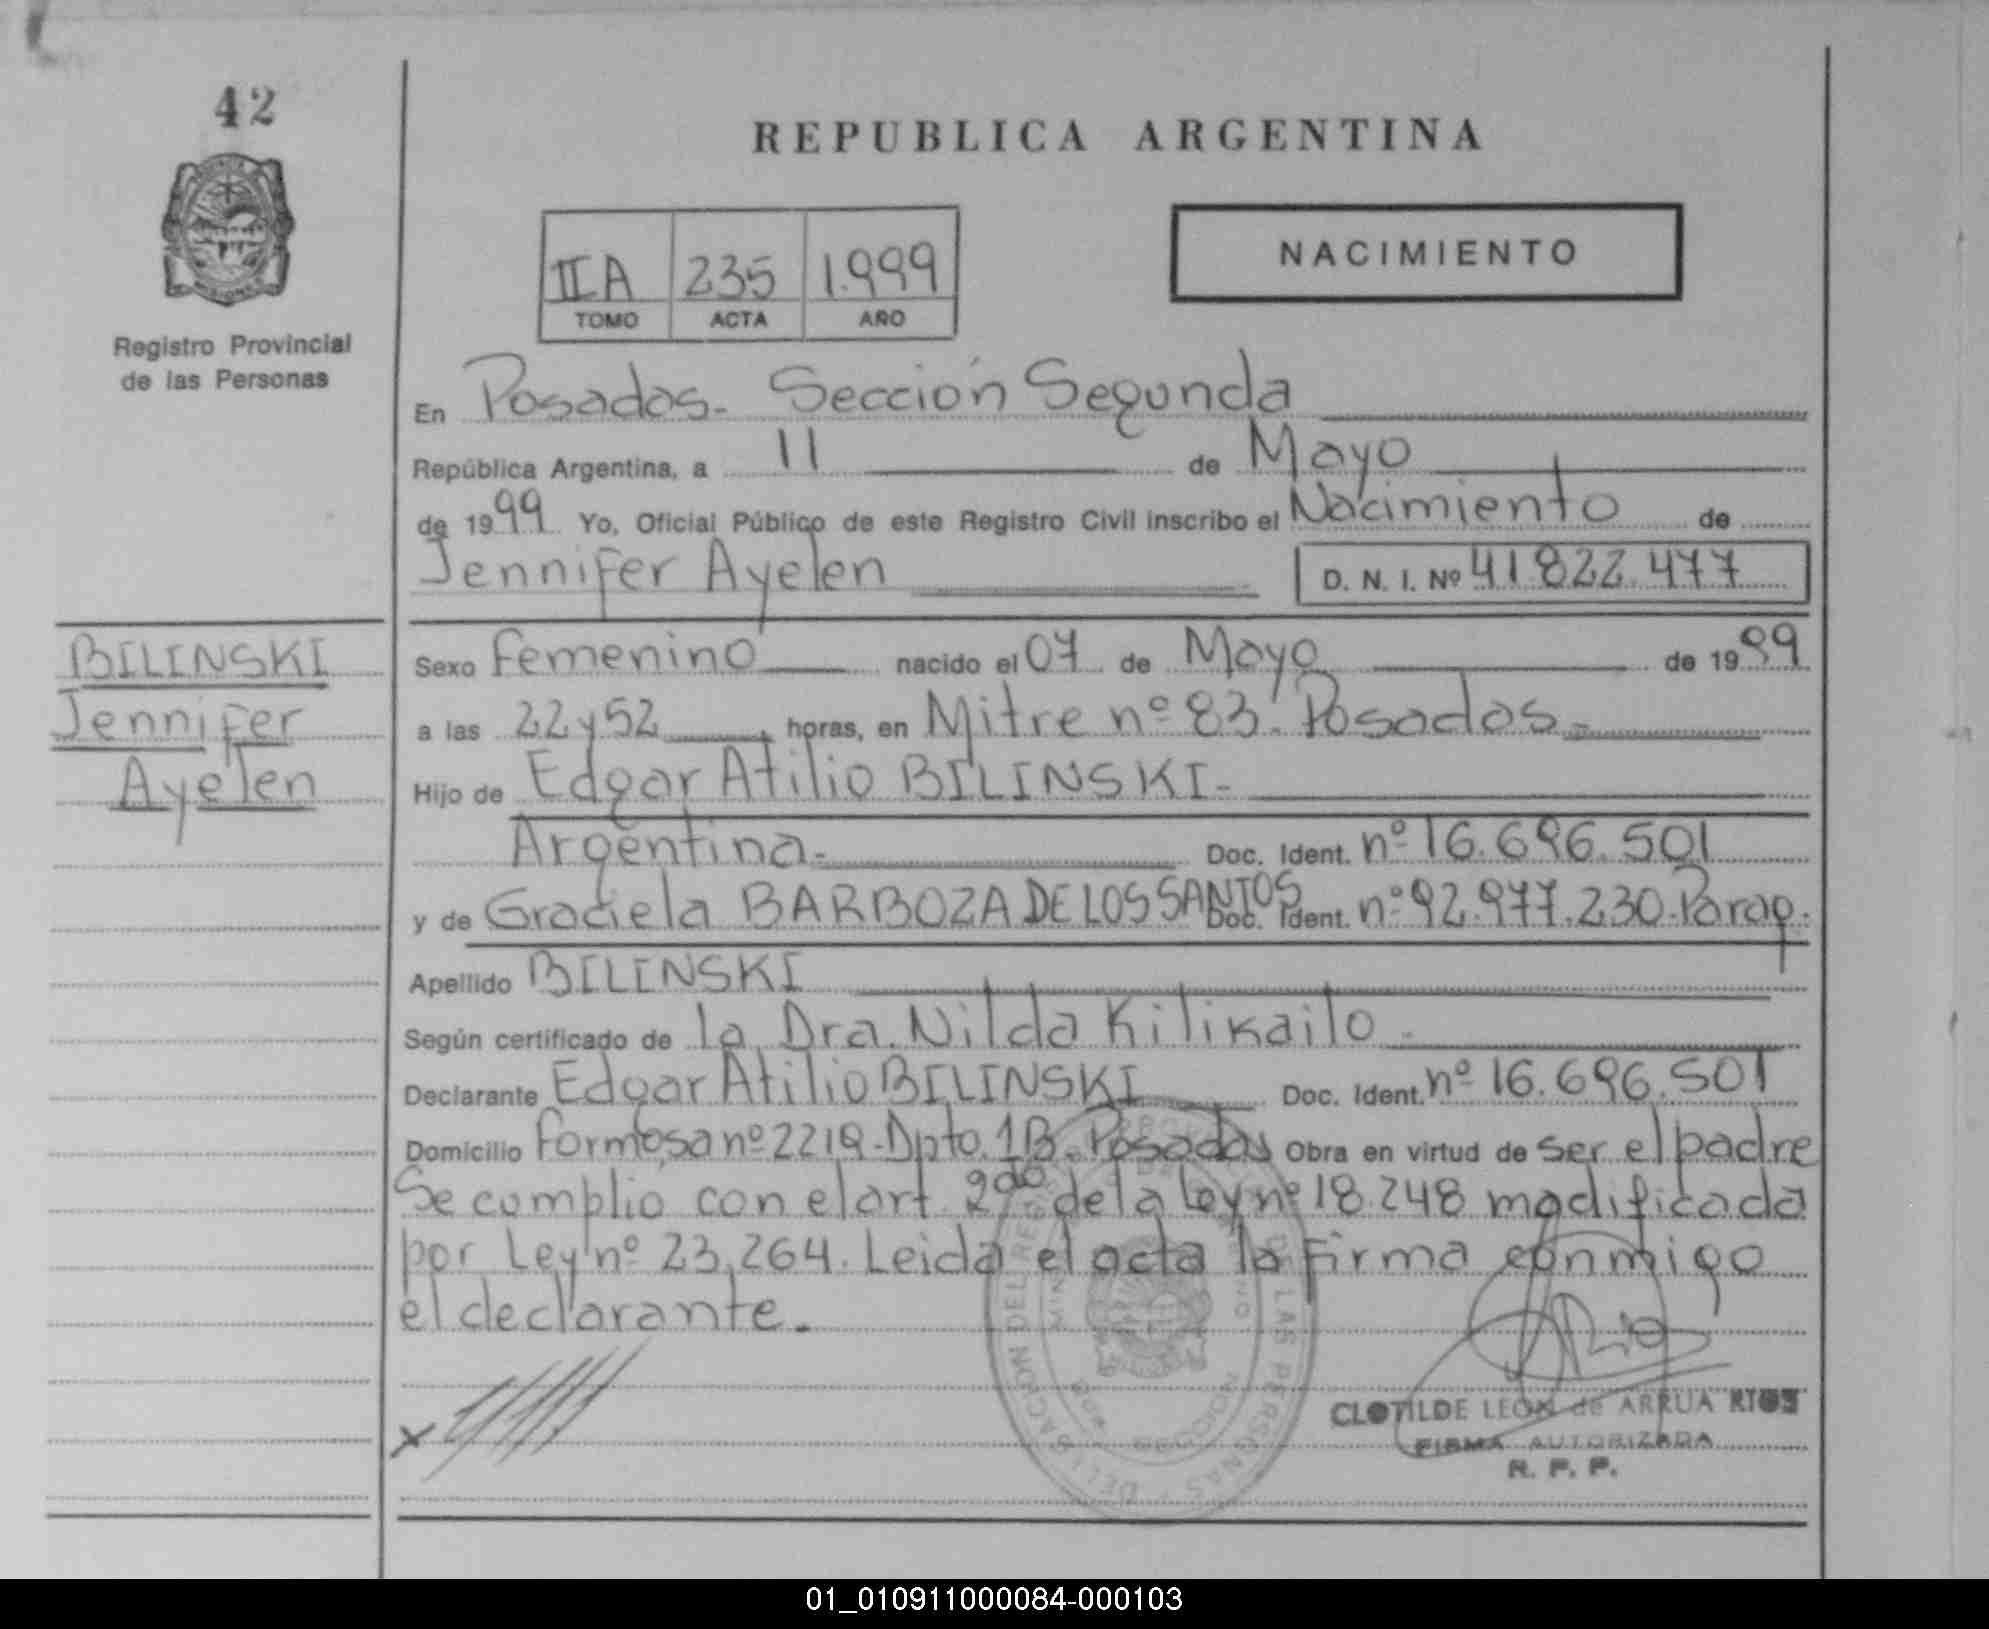 42
REPUBLICA ARGENTINA
IIA 235 1.999
TOMO ACTA AÑO
NACIMIENTO
Registro Provincial
de las Personas
En Posadas.- Sección Segunda
República Argentina, a 11 de Mayo
de 1999 Yo, Oficial Público de este Registro Civil inscribo el Nacimiento de
Jennifer Ayelen D. N. I. Nº 41.822.477
BILINSKI
Jennifer
Ayelen
Sexo Femenino nacido el 07 de Mayo de 1999
a las 22 y 52 horas, en Mitre nº 83. Posadas.-
Hijo de Edgar Atilio BILINSKI.-
Argentina.- Doc. Ident. nº 16.696.501
y de Graciela BARBOZA DE LOS SANTOS Doc. Ident. nº 92.977.230.Parag.
Apellido BILINSKI
Según certificado de la Dra. Nilda Kilikailo.-
Declarante Edgar Atilio BILINSKI Doc. Ident. nº 16.696.501
Domicilio Formosa nº 2219-Dpto. 1B. Posadas Obra en virtud de ser el padre
Se cumplió con el art. 2do de la Ley nº 18.248 modificada
por Ley nº 23.264. Leida el acta la firma conmigo
el declarante.
CLOTILDE LEON de ARRUA RIOS
FIRMA AUTORIZADA
R. P. P.
01_010911000084-000103